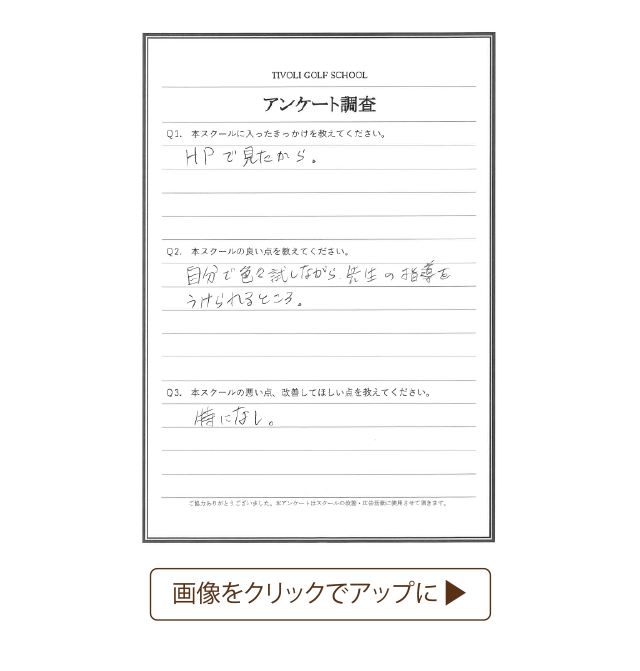 TIVOLI GOLF SCHOOL
アンケート調査
Q1. 本スクールに入ったきっかけを教えてください。
HPで見たから。
Q2. 本スクールの良い点を教えてください。
自分で色々試しながら、先生の指導を
うけられるところ。
Q3. 本スクールの悪い点、改善してほしい点を教えてください。
特になし。
ご協力ありがとうございました。本アンケートはスクールの改善・広告活動に使用させて頂きます。
画像をクリックでアップに▶